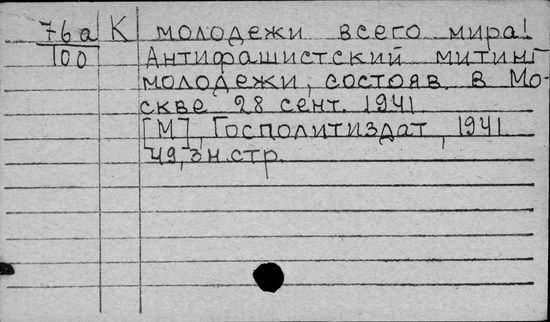 76а К молодежи всего мира!
100 Антифашистский митинг
молодежи, состояв. в Мо-
скве 28 сент. 1941
[М], Госполитиздат, 1941.
49,3н.стр.